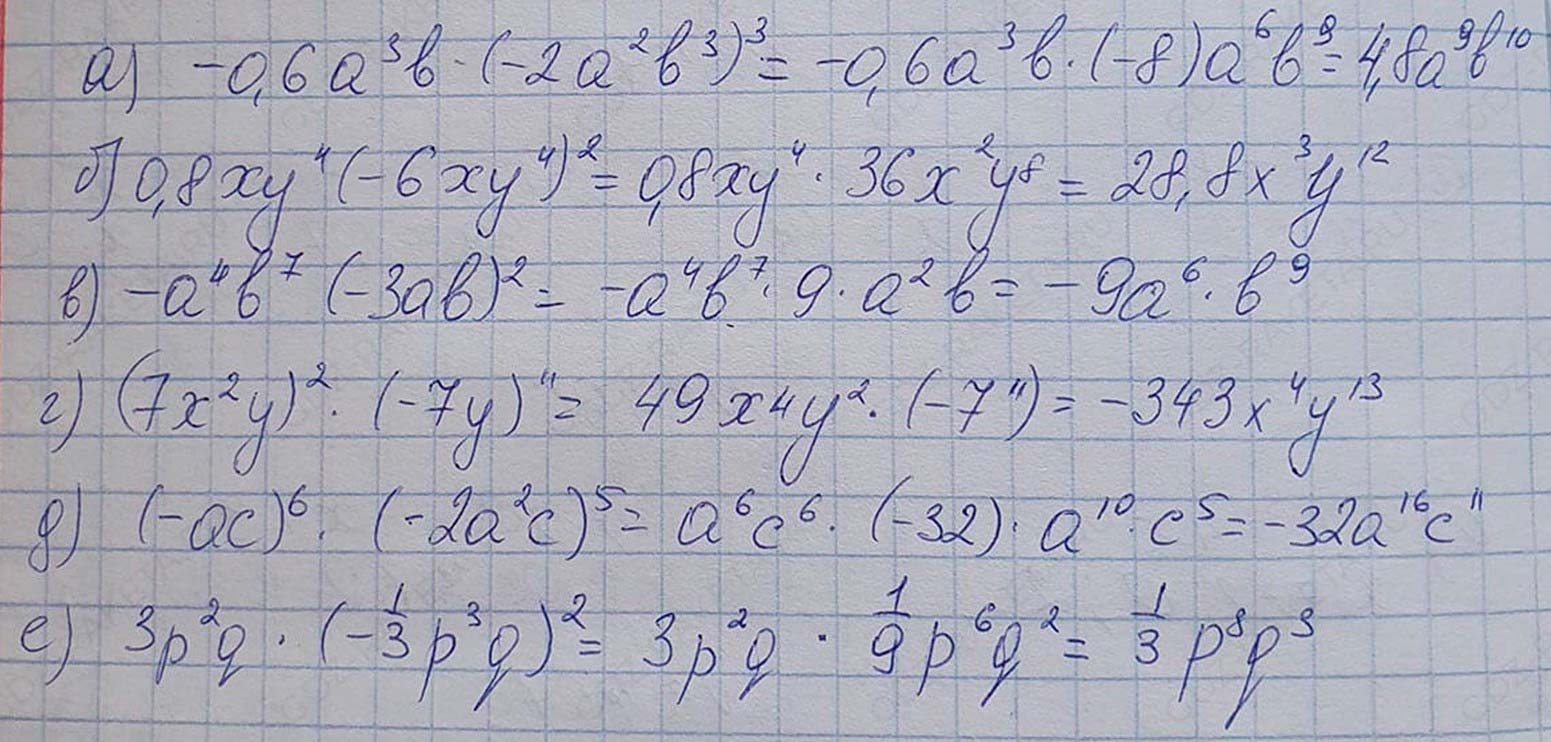 а) -0,6a³b · (-2a²b³)³ = -0,6a³b · (-8)a⁶b⁹ = 4,8a⁹b¹⁰
б) 0,8xy⁴(-6xy⁴)² = 0,8xy⁴ · 36x²y⁸ = 28,8x³y¹²
в) -a⁴b⁷ (-3ab)² = -a⁴b⁷ · 9 · a²b = -9a⁶ · b⁹
г) (7x²y)² · (-7y)¹¹ = 49x⁴y² · (-7¹¹) = -343x⁴y¹³
д) (-ac)⁶ · (-2a²c)⁵ = a⁶c⁶ · (-32) · a¹⁰ · c⁵ = -32a¹⁶c¹¹
е) 3p²q · (-1/3p³q)² = 3p²q · 1/9p⁶q² = 1/3 p⁸p³